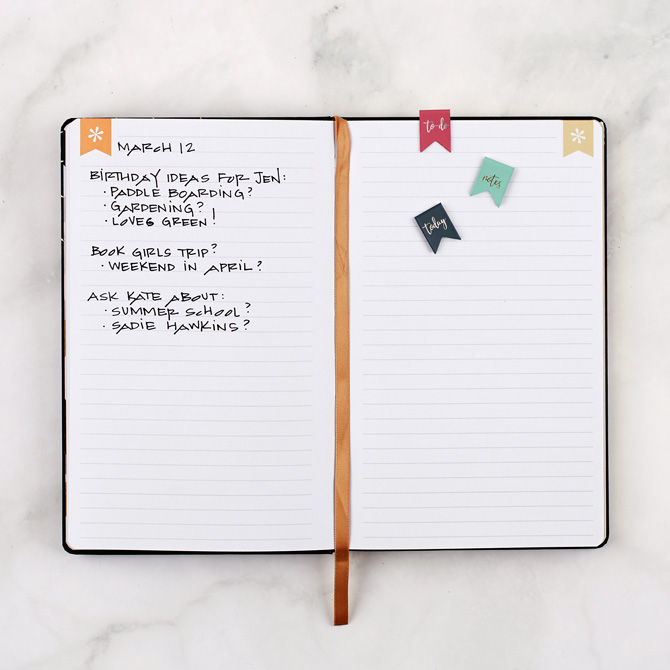 MARCH 12
BIRTHDAY IDEAS FOR JEN:
· PADDLE BOARDING?
· GARDENING?
· LOVES GREEN!
BOOK GIRLS TRIP?
· WEEKEND IN APRIL?
ASK KATE ABOUT:
· SUMMER SCHOOL?
· SADIE HAWKINS?
to-do
notes
today